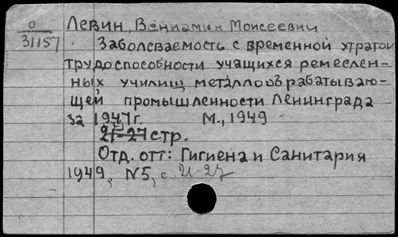 О
31157
Левин, Вениамин Моисеевич
Заболеваемость с временной утратой
трудоспособности учащихся ремеслен-
ных училищ металлообрабатываю-
щей промышленности Ленинграда
за 1947г. М., 1949
21-27 стр.
Отд. отт: Гигиена и Санитария
1949, N5, с. 21-27